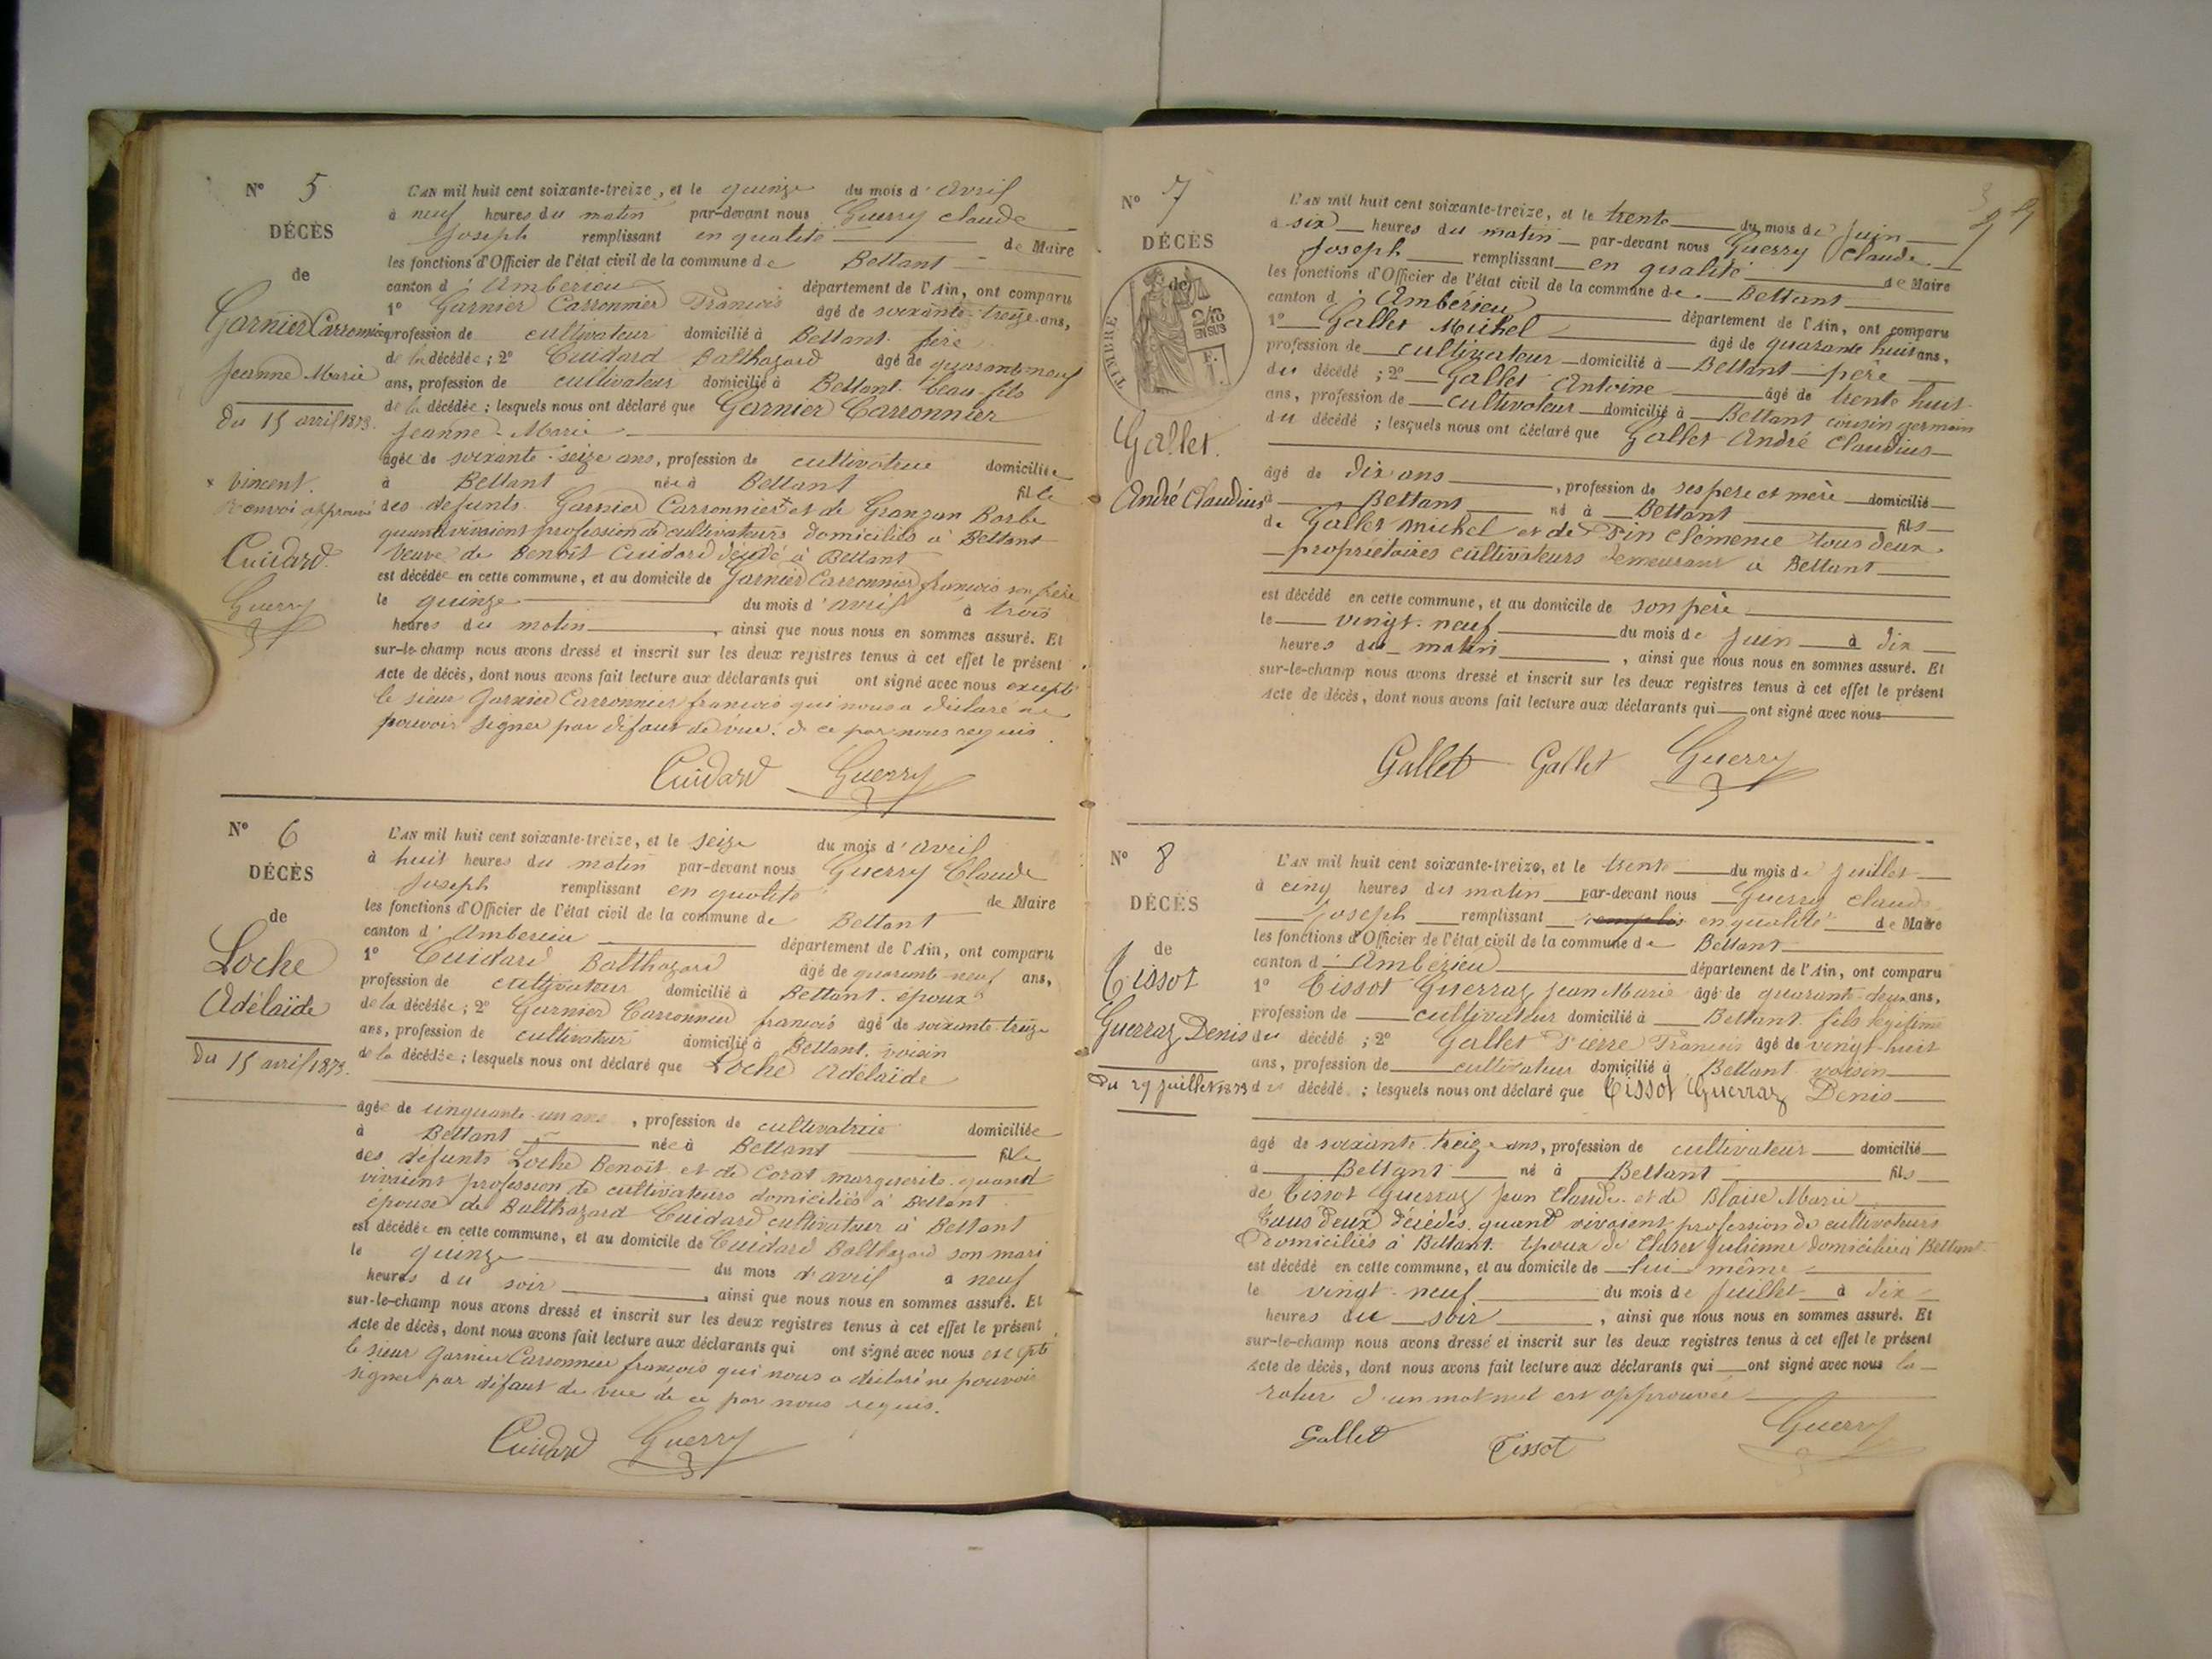 N° 5
DÉCÈS
de
Garnier Carronnier
Jeanne Marie
du 15 avril 1873.
x vincent.
Renvoi approuvé
Cuidard
Guerry
L'AN mil huit cent soixante-treize, et le quinze du mois d'avril
à neuf heures du matin par-devant nous Guerry Claude
Joseph remplissant en qualité de Maire
les fonctions d'Officier de l'état civil de la commune de Bettant
canton d'Ambérieu département de l'Ain, ont comparu
1° Garnier Carronnier François âgé de soixante-treize ans,
profession de cultivateur domicilié à Bettant frère
de la décédée ; 2° Cuidard Balthazard âgé de quarante neuf
ans, profession de cultivateur domicilié à Bettant beau-fils
de la décédée ; lesquels nous ont déclaré que Garnier Carronnier
Jeanne-Marie
âgée de soixante-seize ans, profession de cultivatrice domiciliée
à Bettant née à Bettant fille
des défunts Garnier Carronnier x et de Granjan Barbe
quand vivaient profession de cultivateurs domiciliés à Bettant
Veuve de Benoît Cuidard décédé à Bettant
est décédée en cette commune, et au domicile de Garnier Carronnier françois son frère
le quinze du mois d'avril à trois
heures du matin, ainsi que nous nous en sommes assuré. Et
sur-le-champ nous avons dressé et inscrit sur les deux registres tenus à cet effet le présent
Acte de décès, dont nous avons fait lecture aux déclarants qui ont signé avec nous excepté
le sieur Garnier Carronnier françois qui nous a déclaré ne
pouvoir signer par défaut de vue. de ce par nous requis.
Cuidard Guerry
N° 6
DÉCÈS
de
Loche
Adélaïde
du 15 avril 1873.
L'AN mil huit cent soixante-treize, et le seize du mois d'avril
à huit heures du matin par-devant nous Guerry Claude
Joseph remplissant en qualité de Maire
les fonctions d'Officier de l'état civil de la commune de Bettant
canton d'Ambérieu département de l'Ain, ont comparu
1° Cuidard Balthazard âgé de quarante-neuf ans,
profession de cultivateur domicilié à Bettant. époux
de la décédée ; 2° Garnier Carronnier françois âgé de soixante-treize
ans, profession de cultivateur domicilié à Bettant. voisin
de la décédée ; lesquels nous ont déclaré que Loche Adélaïde
âgée de cinquante-un ans, profession de cultivatrice domiciliée
à Bettant née à Bettant fille
des défunts Loche Benoît et de Corat marguerite. quand
vivaient profession de cultivateurs domiciliés à Bettant
épouse de Balthazard Cuidard cultivateur à Bettant
est décédée en cette commune, et au domicile de Cuidard Balthazard son mari
le quinze du mois d'avril à neuf
heures du soir, ainsi que nous nous en sommes assuré. Et
sur-le-champ nous avons dressé et inscrit sur les deux registres tenus à cet effet le présent
Acte de décès, dont nous avons fait lecture aux déclarants qui ont signé avec nous excepté
le sieur Garnier Carronnier françois qui nous a déclaré ne pouvoir
signer par défaut de vue de ce par nous requis.
Cuidard Guerry
N° 7
DÉCÈS
de
TIMBRE
Gallet.
André Claudius
L'AN mil huit cent soixante-treize, et le trente du mois de Juin
à six heures du matin par-devant nous Guerry Claude
Joseph remplissant en qualité de Maire
les fonctions d'Officier de l'état civil de la commune de Bettant
canton d'Ambérieu département de l'Ain, ont comparu
1° Gallet Michel âgé de quarante huit ans,
profession de cultivateur domicilié à Bettant père
du décédé ; 2° Gallet Antoine âgé de trente huit
ans, profession de cultivateur domicilié à Bettant cousin germain
du décédé ; lesquels nous ont déclaré que Gallet André Claudius
âgé de dix ans, profession de ses père et mère domicilié
à Bettant né à Bettant fils
de Gallet Michel et de Pin Clémence tous deux
propriétaires cultivateurs demeurant à Bettant
est décédé en cette commune, et au domicile de son père
le vingt-neuf du mois de Juin à dix
heures du matin, ainsi que nous nous en sommes assuré. Et
sur-le-champ nous avons dressé et inscrit sur les deux registres tenus à cet effet le présent
Acte de décès, dont nous avons fait lecture aux déclarants qui ont signé avec nous
Gallet Gallet Guerry
N° 8
DÉCÈS
de
Tissot
Guerraz Denis
Du 29 Juillet 1873
L'AN mil huit cent soixante-treize, et le trente du mois de Juillet
à cinq heures du matin par-devant nous Guerry Claude
Joseph remplissant en qualité de Maire
les fonctions d'Officier de l'état civil de la commune de Bettant
canton d'Ambérieu département de l'Ain, ont comparu
1° Tissot Guerraz Jean Marie âgé de quarante-deux ans,
profession de cultivateur domicilié à Bettant fils légitime
du décédé ; 2° Gallet Pierre François âgé de vingt-huit
ans, profession de cultivateur domicilié à Bettant voisin
du décédé ; lesquels nous ont déclaré que Tissot Guerraz Denis
âgé de soixante-treize ans, profession de cultivateur domicilié
à Bettant né à Bettant fils
de Tissot Guerraz Jean Claude et de Blaise Marie
tous deux décédés quand vivaient profession de cultivateurs
domiciliés à Bettant. époux de Julienne domiciliée à Bettant
est décédé en cette commune, et au domicile de lui même
le vingt-neuf du mois de Juillet à dix
heures du soir, ainsi que nous nous en sommes assuré. Et
sur-le-champ nous avons dressé et inscrit sur les deux registres tenus à cet effet le présent
Acte de décès, dont nous avons fait lecture aux déclarants qui ont signé avec nous la
rature d'un mot nul est approuvée
Gallet Tissot Guerry